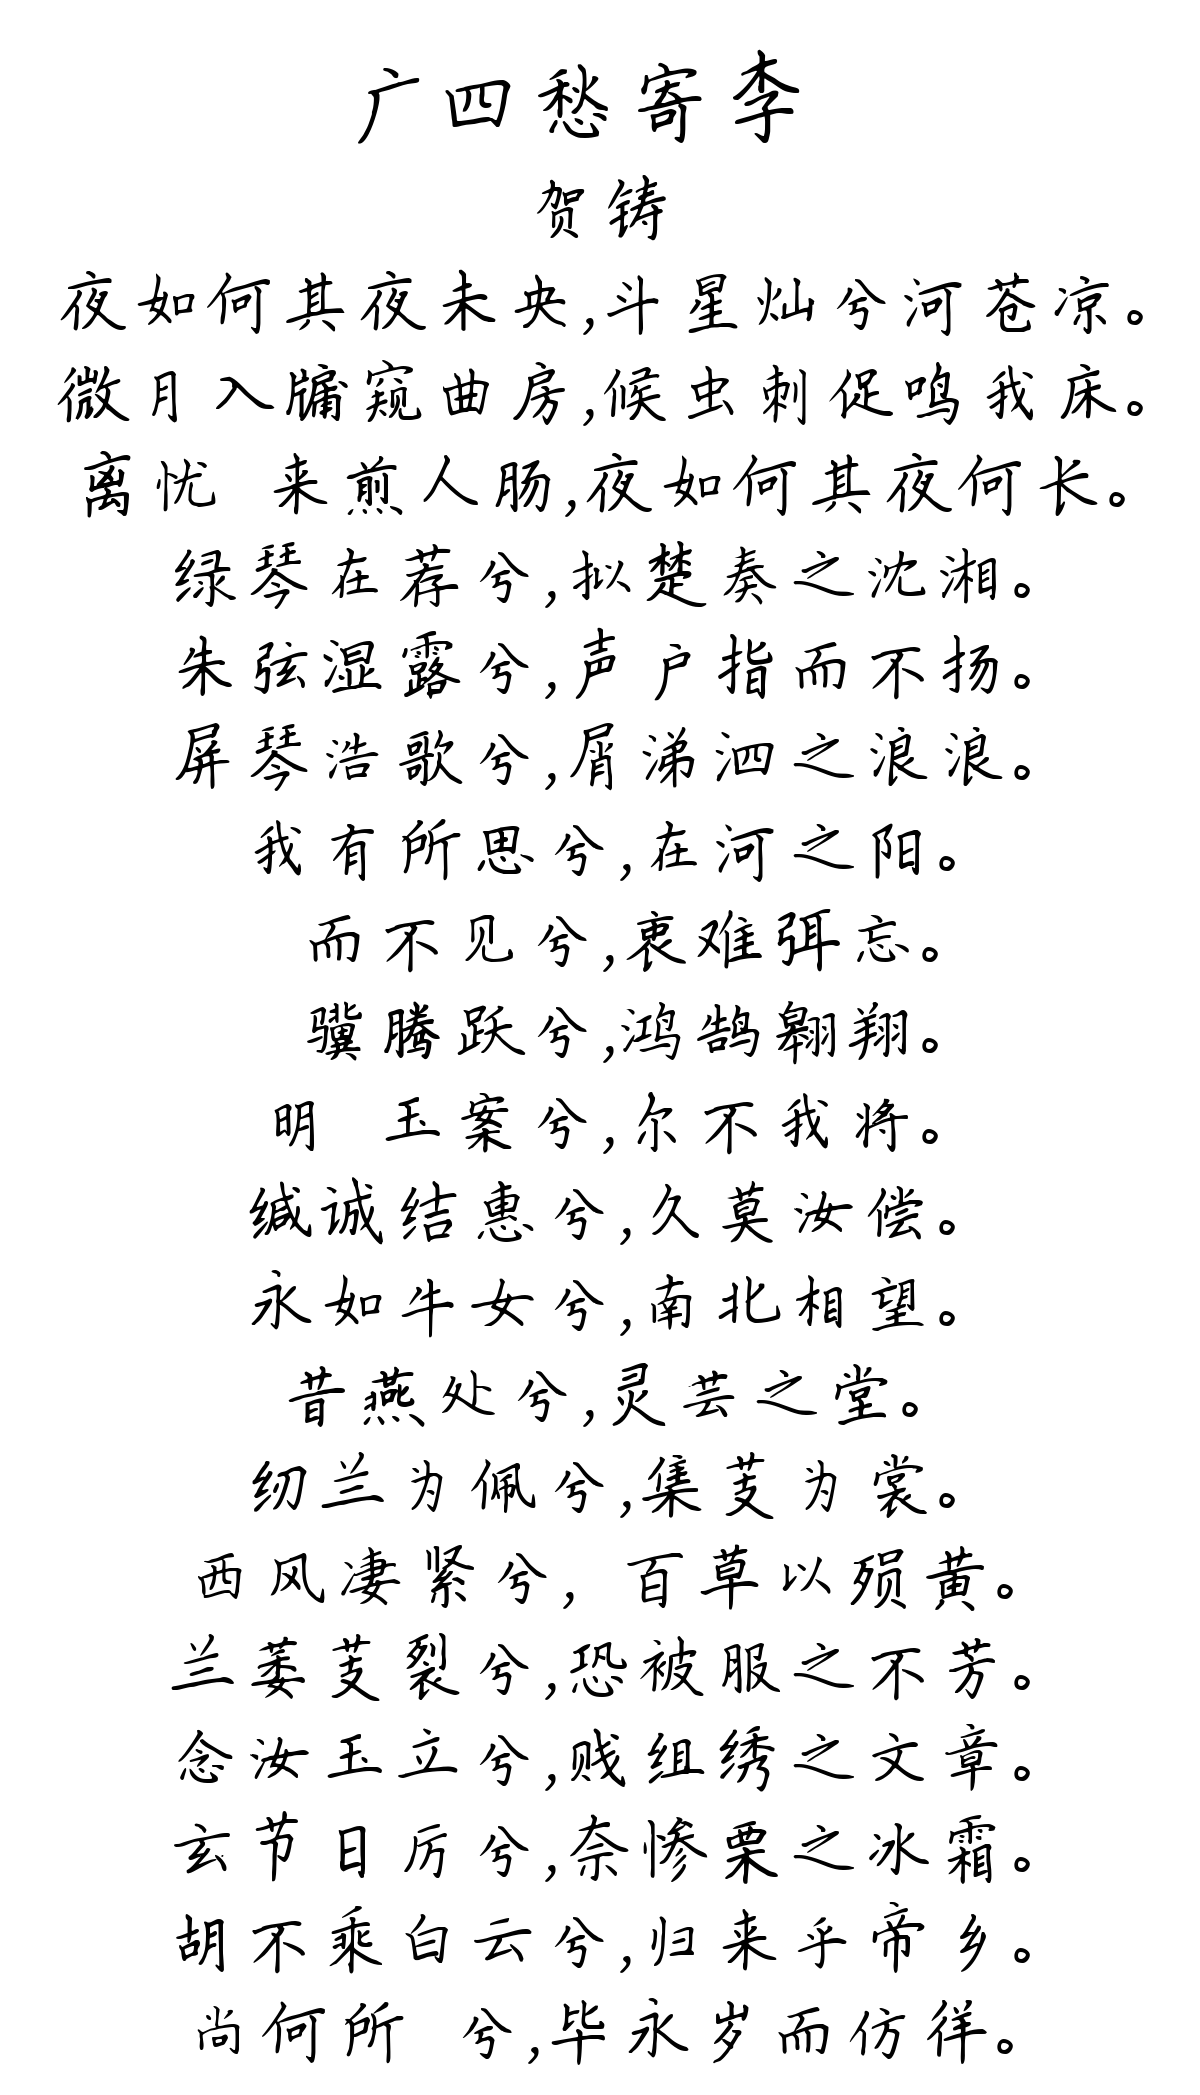 广四愁寄李
贺铸
夜如何其夜未央,斗星灿兮河苍凉。
微月入牖窥曲房,候虫刺促鸣我床。
离忧 来煎人肠,夜如何其夜何长。
绿琴在荐兮,拟楚奏之沈湘。
朱弦湿露兮,声户指而不扬。
屏琴浩歌兮,屑涕泗之浪浪。
我有所思兮,在河之阳。
而不见兮,衷难弭忘。
骥腾跃兮,鸿鹄翱翔。
明 玉案兮,尔不我将。
缄诚结惠兮,久莫汝偿。
永如牛女兮,南北相望。
昔燕处兮,灵芸之堂。
纫兰为佩兮,集芰为裳。
西风凄紧兮，百草以殒黄。
兰萎芰裂兮,恐被服之不芳。
念汝玉立兮,贱组绣之文章。
玄节日厉兮,奈惨栗之冰霜。
胡不乘白云兮,归来乎帝乡。
尚何所 兮,毕永岁而仿徉。